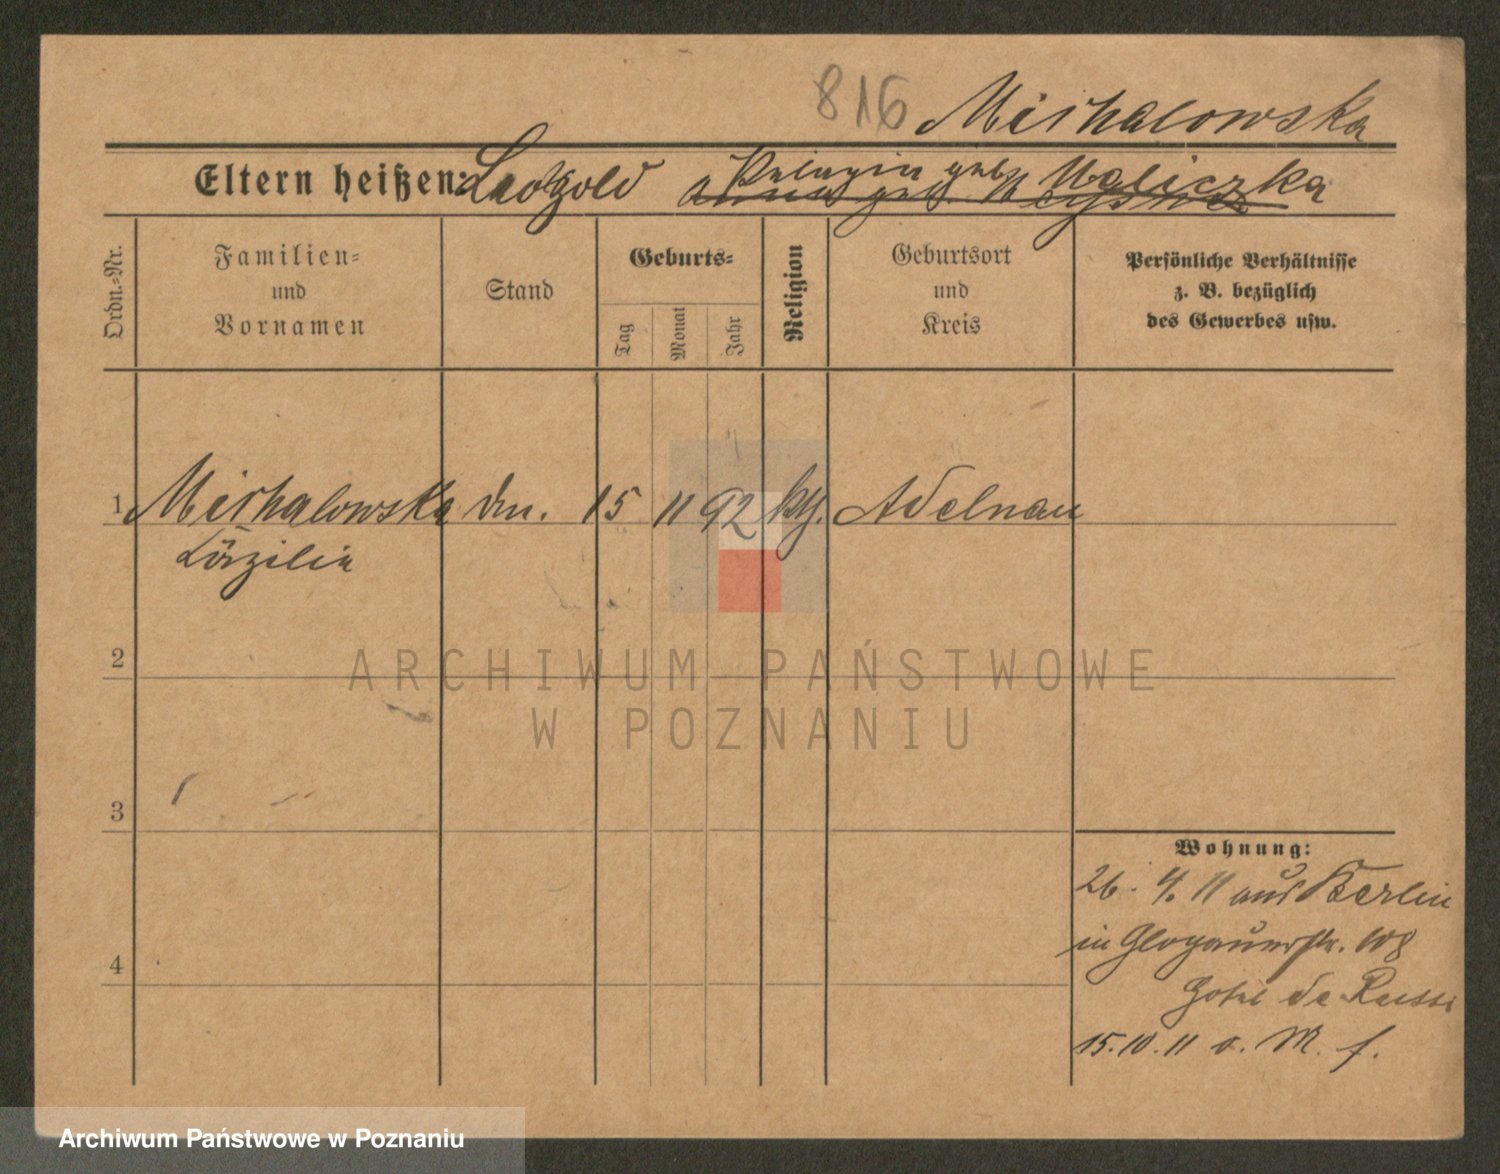 816 Michalowska
Eltern heißen: Leopold Pelagia geb. Waliczka
Ordn.-Nr.
Familien-
und
Vornamen
Stand
Geburts-
Tag
Monat
Jahr
Religion
Geburtsort
und
Kreis
Persönliche Verhältnisse
z. B. bezüglich
des Gewerbes usw.
1 Michalowska 15 11 92 kth. Adelnau
Cäzilie
2
3
4
Wohnung:
26. 4. 11 aus Berlin
in Glogauerstr. 108
Hotel de Russi
15. 10. 11 o. M. f.
ARCHIWUM PAŃSTWOWE
W POZNANIU
Archiwum Państwowe w Poznaniu